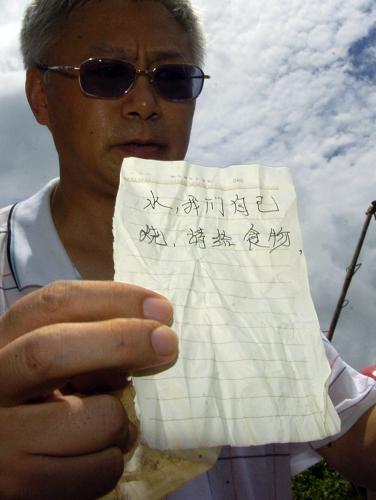 水,我们自己
烧,请给食物,